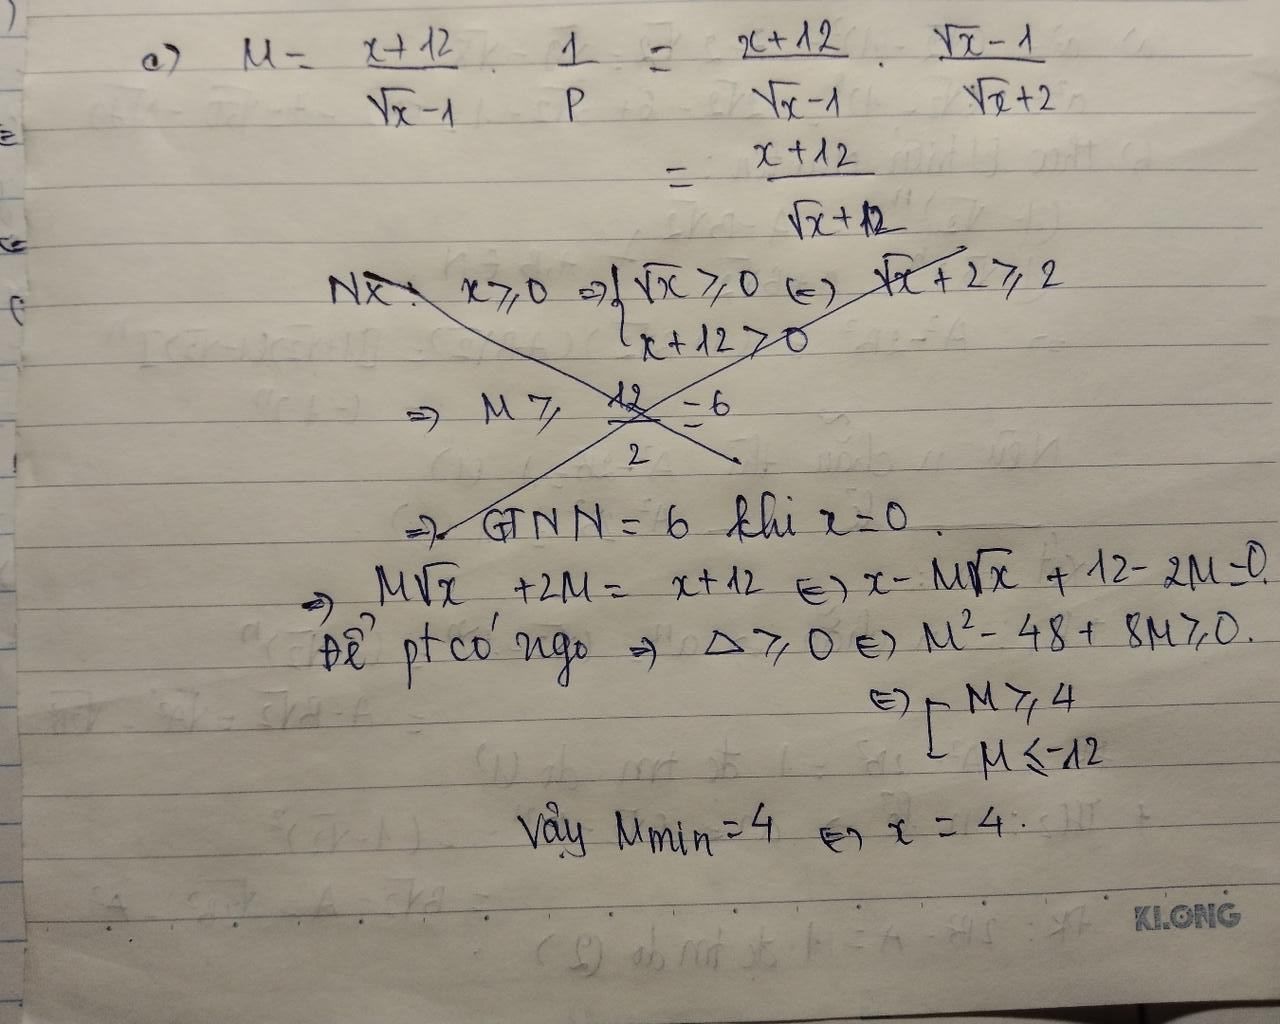 c) M = \frac{x+12}{\sqrt{x}-1} . \frac{1}{P} = \frac{x+12}{\sqrt{x}-1} . \frac{\sqrt{x}-1}{\sqrt{x}+2}
= \frac{x+12}{\sqrt{x}+12}
Nx : x ⩾ 0 ⇒ { \sqrt{x} ⩾ 0 ⇔ \sqrt{x} + 2 ⩾ 2
x + 12 > 0
⇒ M ⩾ \frac{12}{2} = 6
⇒ GTNN = 6 khi x = 0.
⇒ M\sqrt{x} + 2M = x + 12 ⇔ x - M\sqrt{x} + 12 - 2M = 0.
Để pt có ngo ⇒ Δ ⩾ 0 ⇔ M² - 48 + 8M ⩾ 0.
⇔ [ M ⩾ 4
M ⩽ -12
Vậy Mmin = 4 ⇔ x = 4.
KLONG